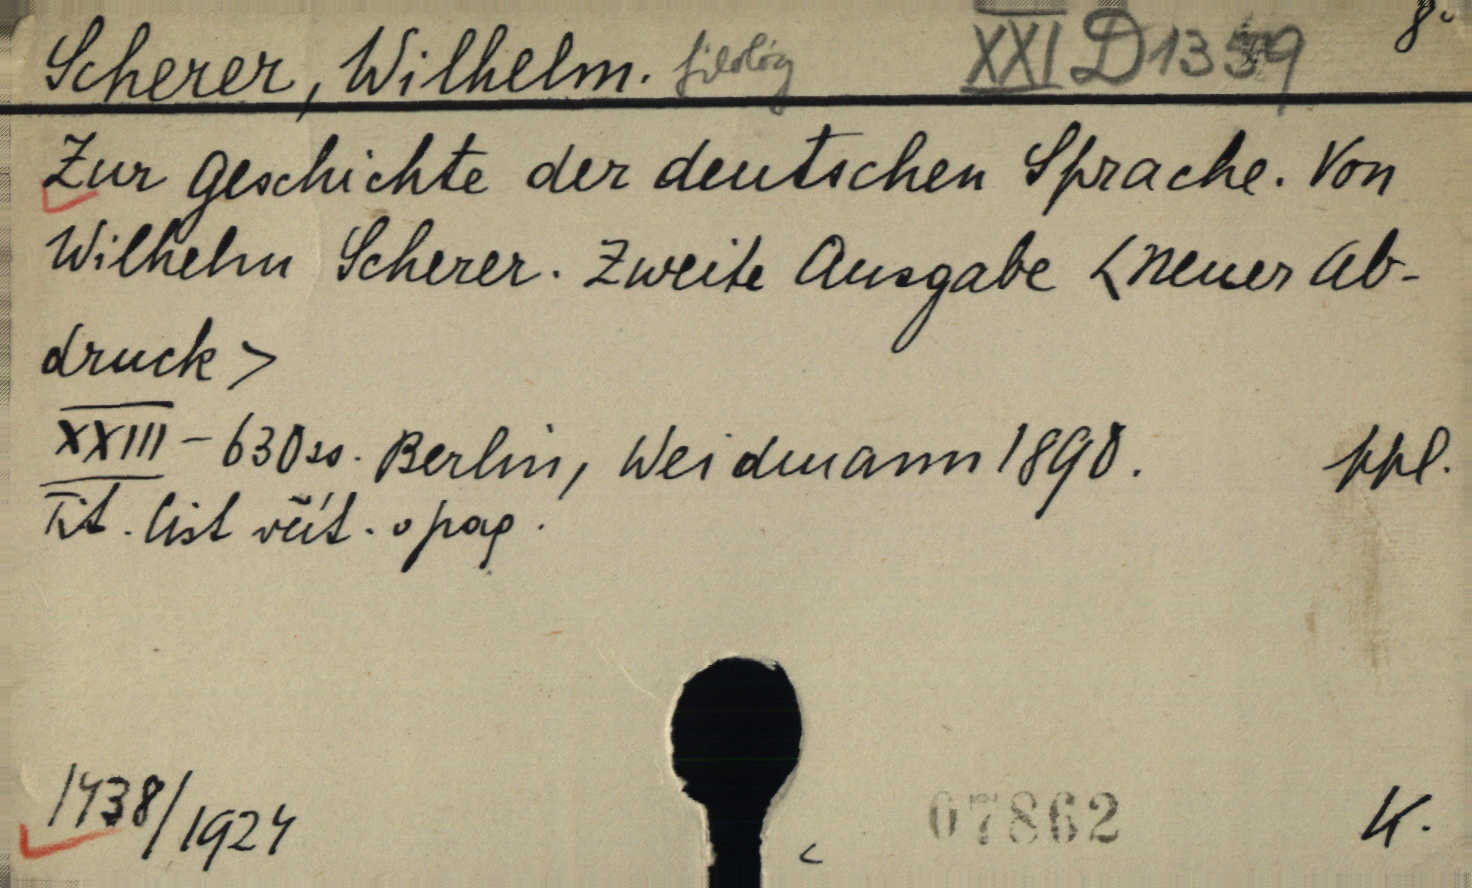 Scherer, Wilhelm. filológ XXI D 1359 8°
Zur Geschichte der deutschen Sprache. Von
Wilhelm Scherer. Zweite Ausgabe <Neuer Ab-
druck>
XXIII - 630 ss. Berlin, Weidmann 1890. ppl.
Tit. list pag.
1738/1924 07862 K.